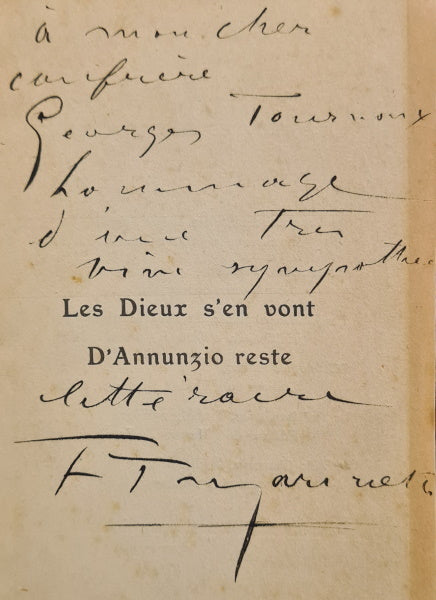 à mon cher
confrère
Georges Tournoux
hommage
d'une très
vive sympathie
Les Dieux s'en vont
D'Annunzio reste
littéraire
F T Marinetti